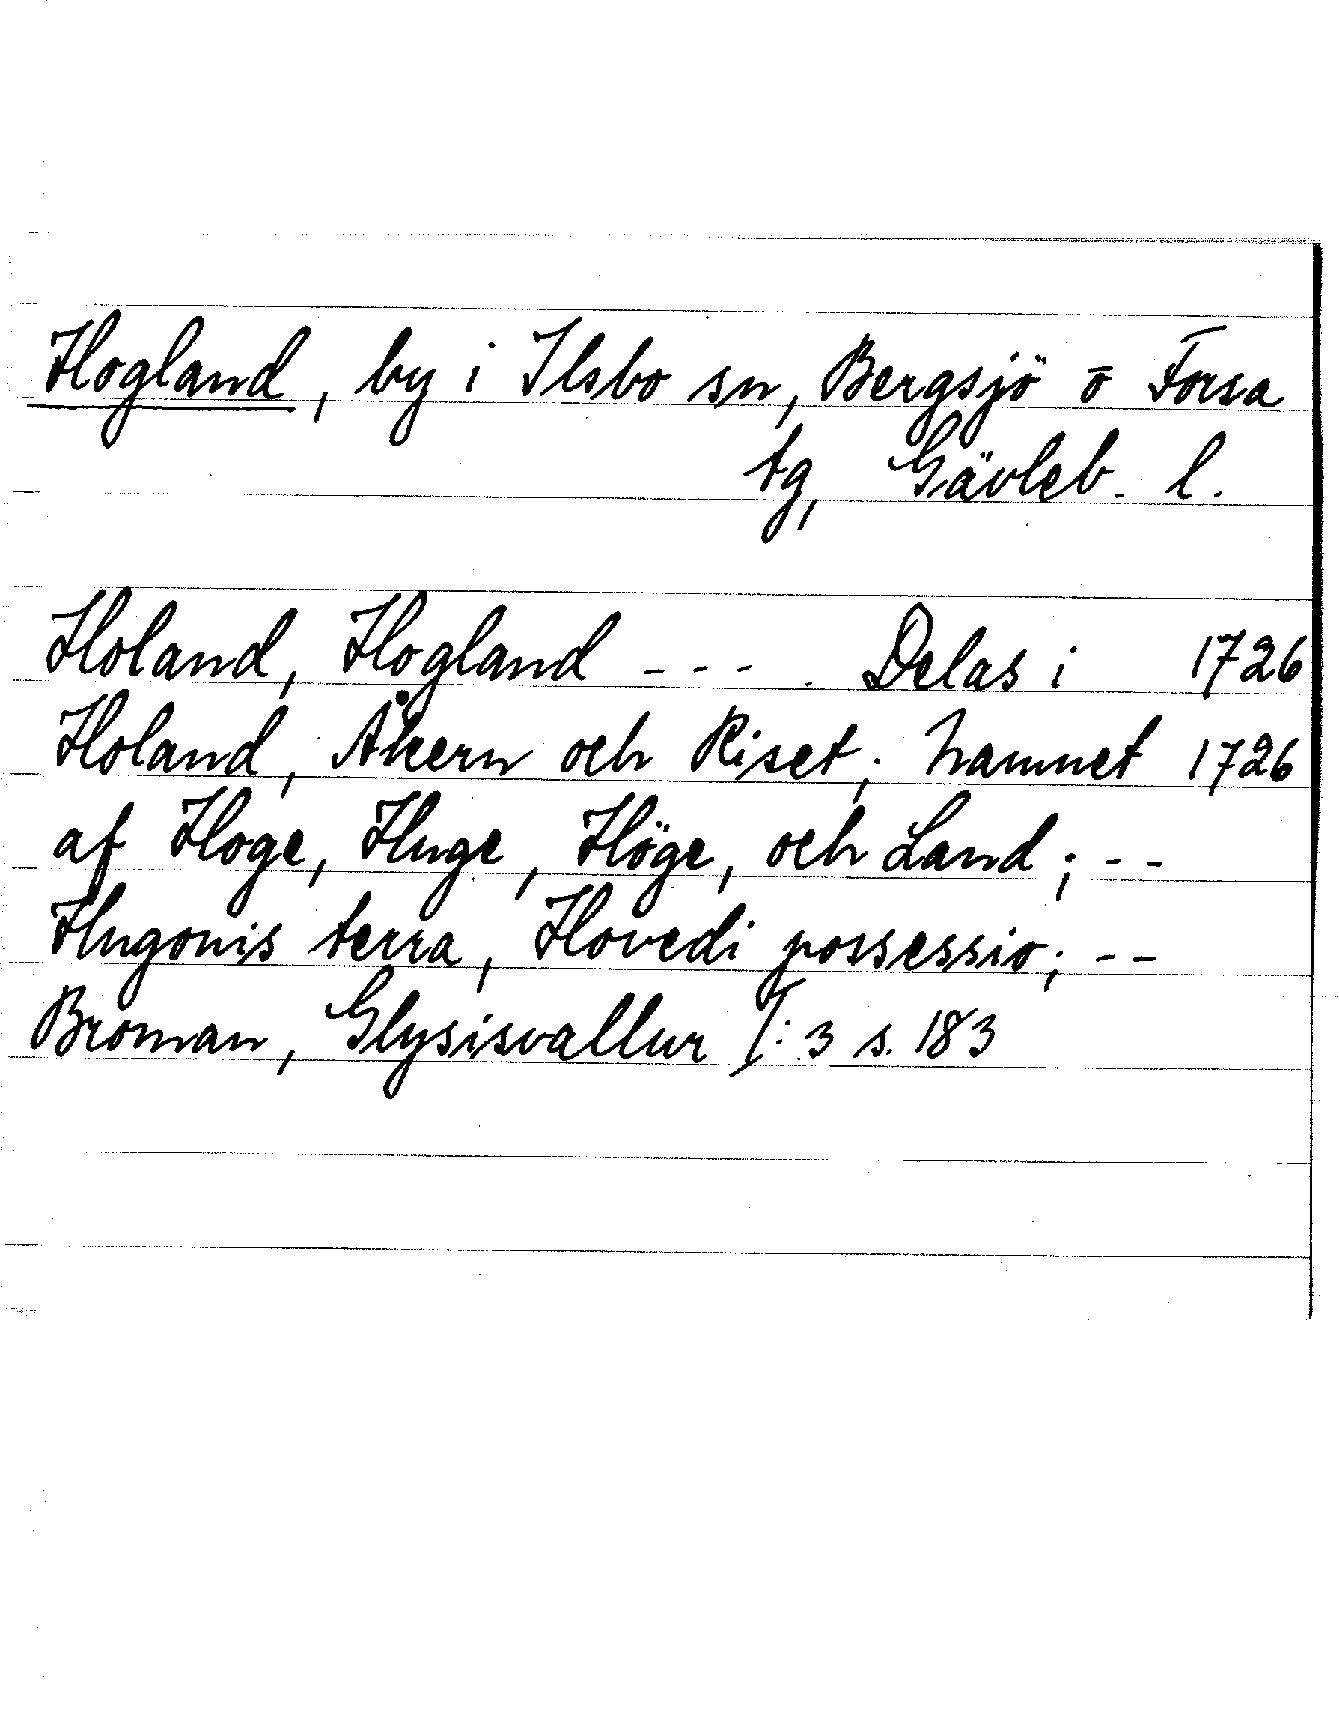 Hogland, by i Ilsbo sn, Bergsjö o Forsa
tg, Gävleb. l.
Holand, Hogland - - - . Delas i 1726
Holand, Åkern och Riset; namnet 1726
af Hoge, Huge, Höge, och Land; - -
Hugonis terra, Hovedi possessio; - -
Broman, Glysisvallur I: 3 s. 183